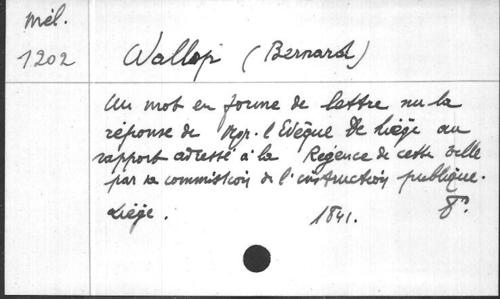 Mél.
1202
Wallop (Bernard)
Un mot en forme de lettre sur la
réponse de Mgr. l'Evêque De Liége au
rapport adressé à la Régence de cette ville
par sa commission de l'instruction publique.
Liége. 1841. 8°.